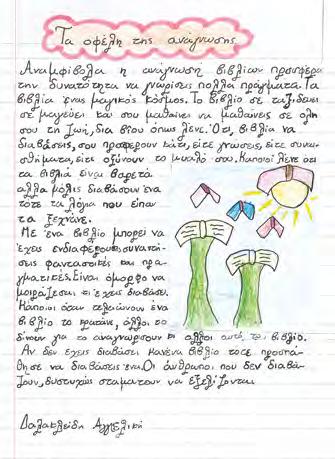 Τα οφέλη της ανάγνωσης
Αναμφίβολα η ανάγνωση βιβλίων προσφέρει
την δυνατότητα να γνωρίσεις πολλά πράγματα. Τα
βιβλία ένας μαγικός κόσμος. Το βιβλίο σε ταξιδεύει
σε μαγεύει και σου μαθαίνει να μαθαίνεις σε όλη
σου τη ζωή, δια βίου όπως λένε. Ότι, βιβλία να
διαβάσεις, σου προσφέρουν κάτι, είτε γνώσεις, είτε συναι-
σθήματα, είτε οξύνουν το μυαλό σου. Κάποιοι λένε ότι
τα βιβλιά είναι βαρετά
αλλα μόλις διαβάσουν ένα
τότε τα λόγια που είπαν
τα ξεχνάνε.
Με ένα βιβλίο μπορεί να
έχεις ενδιαφέρουσες συναντή-
σεις φανταστικές και πρα-
γματικές. Είναι όμορφο να
μοιράζεσαι τι έχεις διαβάσει.
Κάποιοι όταν τελειώνουν ένα
βιβλίο το κρατάνε, άλλοι το
δίνουν για να αναγνωρίσουν κι άλλοι αυτό το βιβλίο.
Αν δεν έχεις διαβάσει κανένα βιβλίο τότε προσπά-
θησε να διαβάσεις ένα. Οι άνθρωποι που δεν διαβά-
ζουν, δυστυχώς σταματουν να εξελίζονται.
Δαλακλείδη Αγγελική